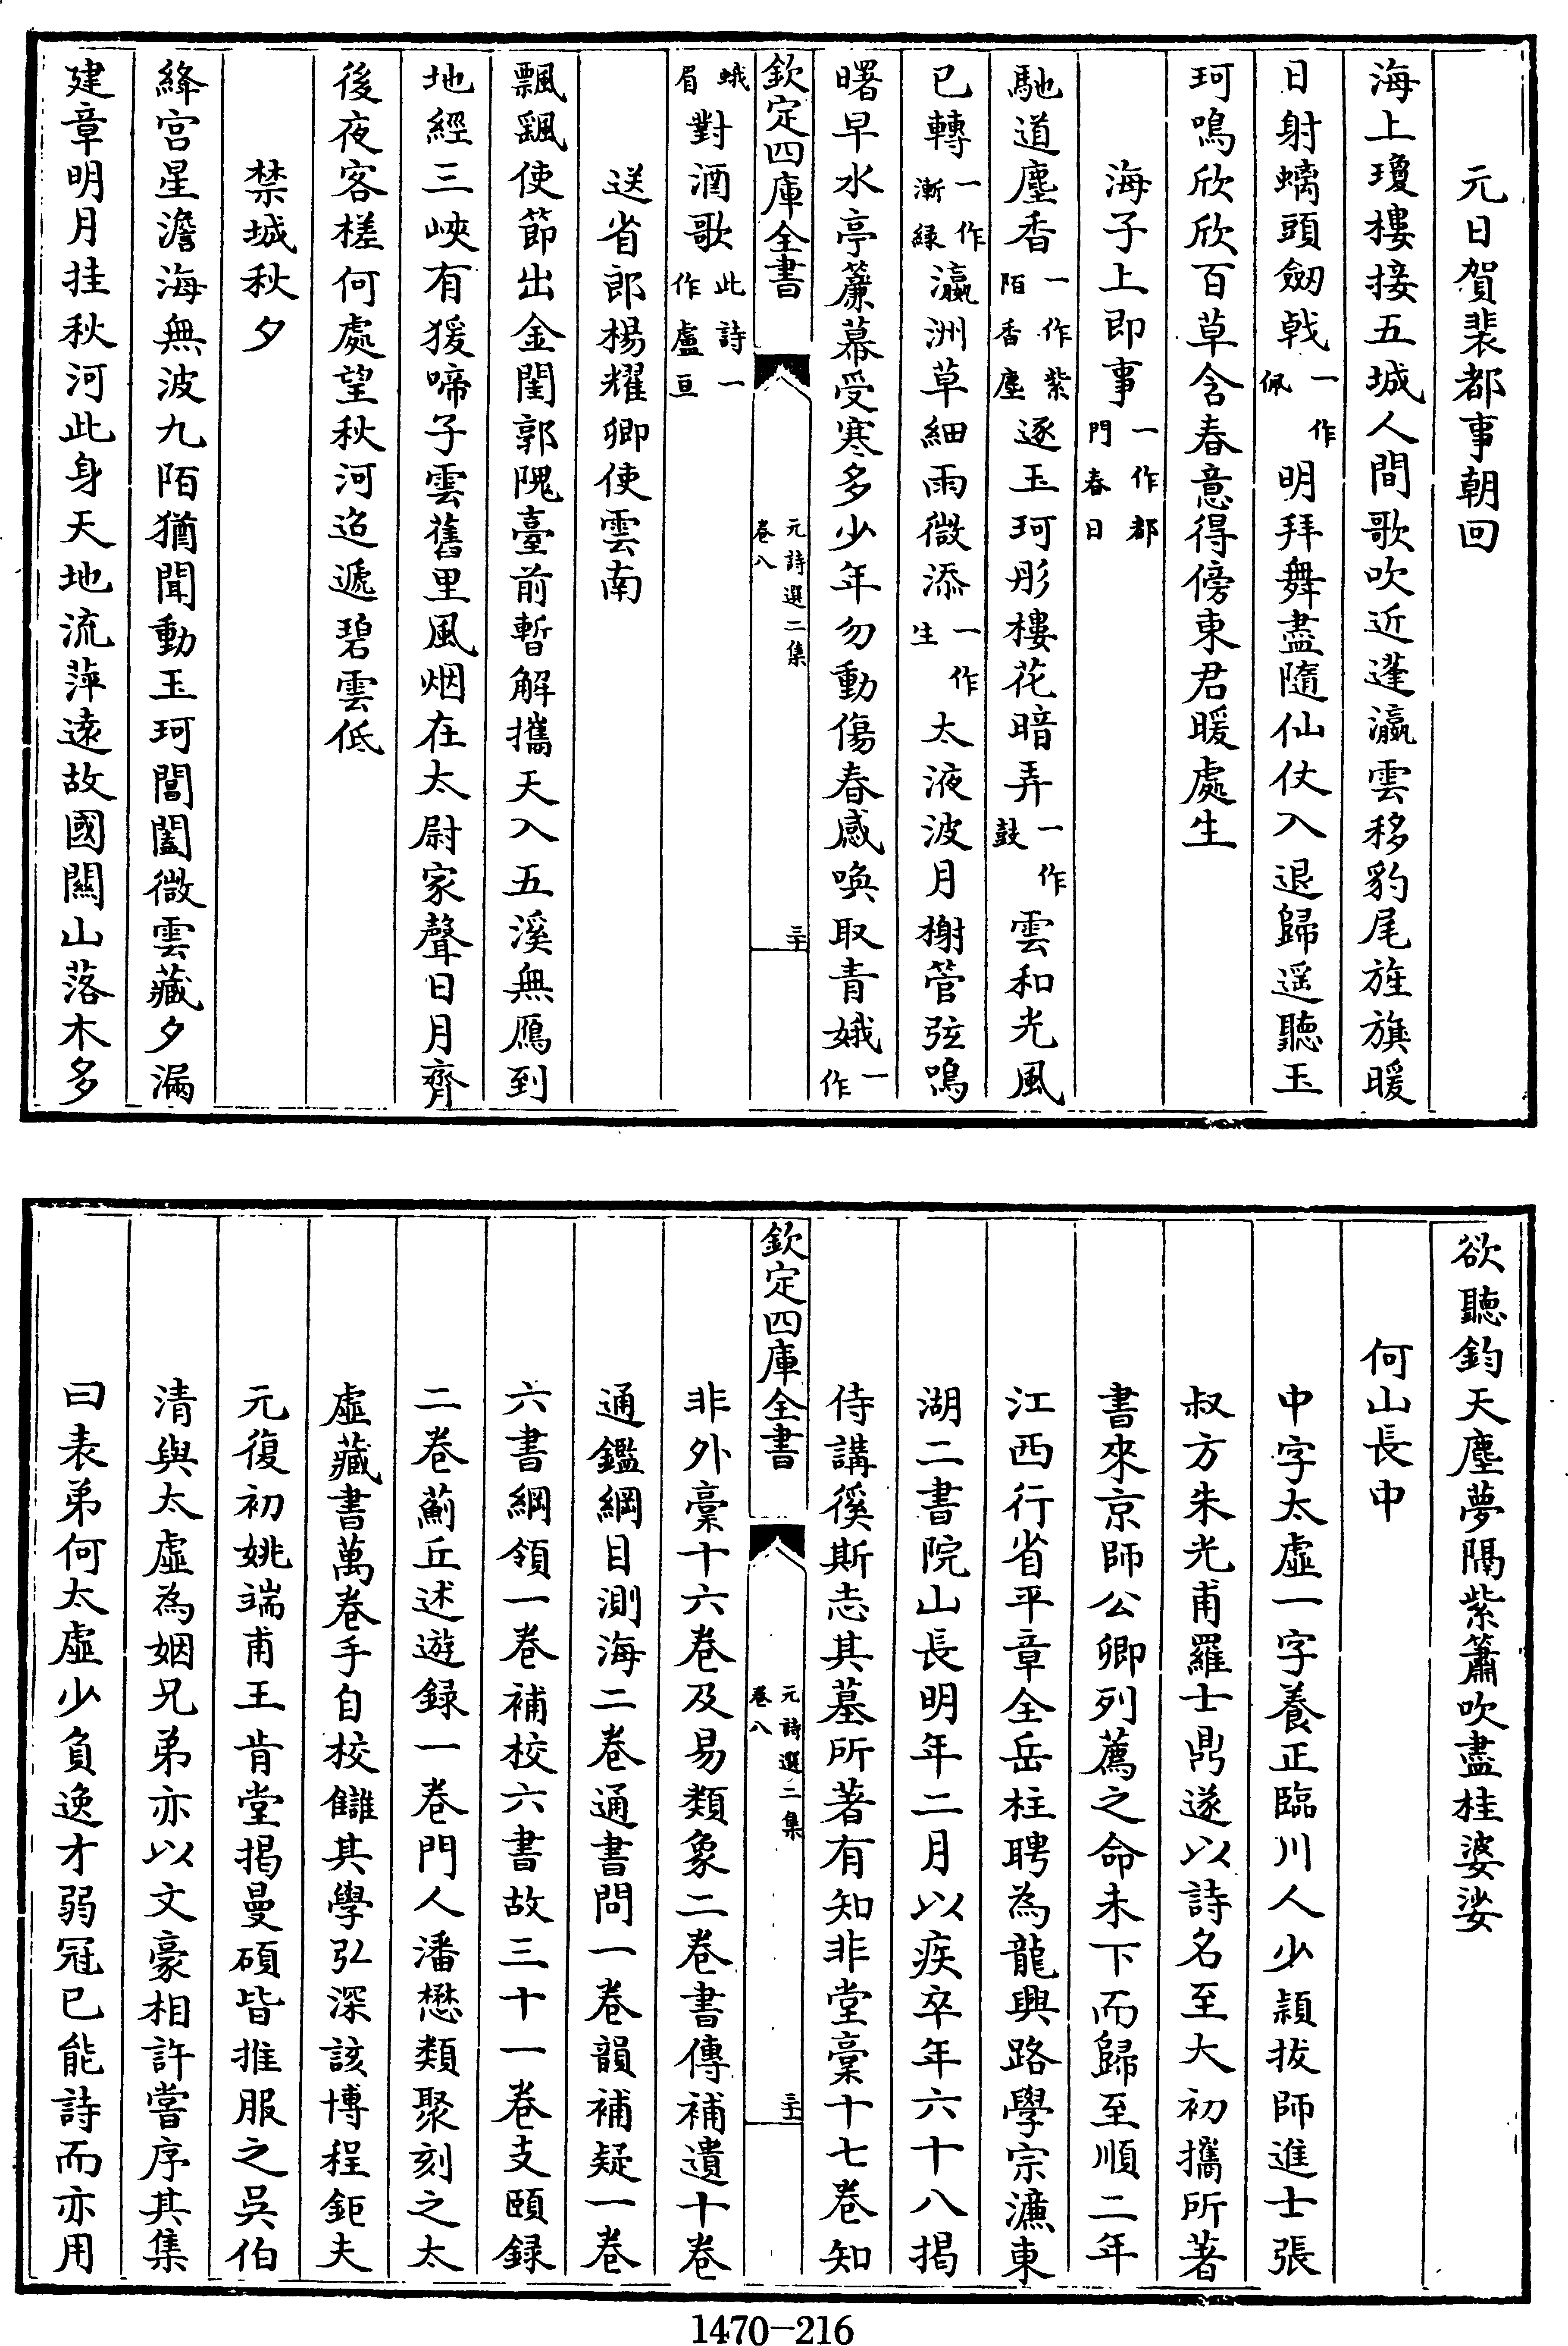 元日賀裴都事朝回
海上瓊樓接五城人間歌吹近蓬瀛雲移豹尾旌旗暖
日射螭頭劒戟一作佩明拜舞盡隨仙仗入退歸遥聽玉
珂鳴欣欣百草含春意得傍東君暖處生
海子上即事一作都門春日
馳道塵香一作紫陌香塵逐玉珂彤樓花暗弄一作鼓雲和光風
已轉一作漸緑瀛洲草細雨微添一作生太液波月榭管弦鳴
曙早水亭簾幕受寒多少年勿動傷春感喚取青娥一作
欽定四庫全書
元詩選二集
卷八
三十
蛾眉對酒歌此詩一作盧亘
送省郎楊耀卿使雲南
飄飄使節出金閨郭隗臺前暫解攜天入五溪無鴈到
地經三峽有猨啼子雲舊里風烟在太尉家聲日月齊
後夜客槎何處望秋河迢遞碧雲低
禁城秋夕
絳宫星澹海無波九陌猶聞動玉珂閶闔微雲藏夕漏
建章明月挂秋河此身天地流萍遠故國關山落木多
欲聽鈞天塵夢隔紫簫吹盡桂婆娑
何山長中
中字太虛一字養正臨川人少穎拔師進士張
叔方朱光甫羅士鼎遂以詩名至大初攜所著
書來京師公卿列薦之命未下而歸至順二年
江西行省平章全岳柱聘為龍興路學宗濂東
湖二書院山長明年二月以疾卒年六十八揭
侍講徯斯志其墓所著有知非堂稾十七卷知
欽定四庫全書
元詩選二集
卷八
三十一
非外稾十六卷及易類象二卷書傳補遺十卷
通鑑綱目測海二卷通書問一卷韻補疑一卷
六書綱領一卷補校六書故三十一卷支頤録
二卷薊丘述遊録一卷門人潘懋類聚刻之太
虛藏書萬卷手自校讎其學弘深該博程鉅夫
元復初姚端甫王肯堂揭曼碩皆推服之吳伯
清與太虛為姻兄弟亦以文豪相許嘗序其集
曰表弟何太虛少負逸才弱冠已能詩而亦用
1470-216